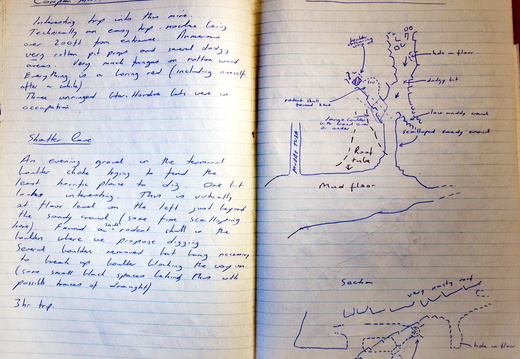 Interesting trip into this mine.
Technically an easy trip - machine being
over 200ft from entrance. Numerous
very rotten pit props and several dodgy
areas. Very much fungus on rotten wood
Everything is a boring red (including oneself
after a while)
Three unringed Gtr. Hordes bats were in
occupation.
Shatter Cave
An evening grovel in the terminal
boulder choke trying to find the
least horrific place to dig. One bit
looks interesting. This is virtually
at floor level on the left just beyond
the sandy crawl (some fine scalloping
here). Found a rodent skull in the
boulders where we propose digging
Several boulders removed but being necessary
to break up boulder blocking the way on
(some small black spaces behind this with
possible traces of draught)
3hr trip.
hole in floor
dodgy bit
rodent skull
found here
low muddy crawl
scalloped sandy crawl
Roof
tube
Mud floor
Section
very nasty roof
hole in floor